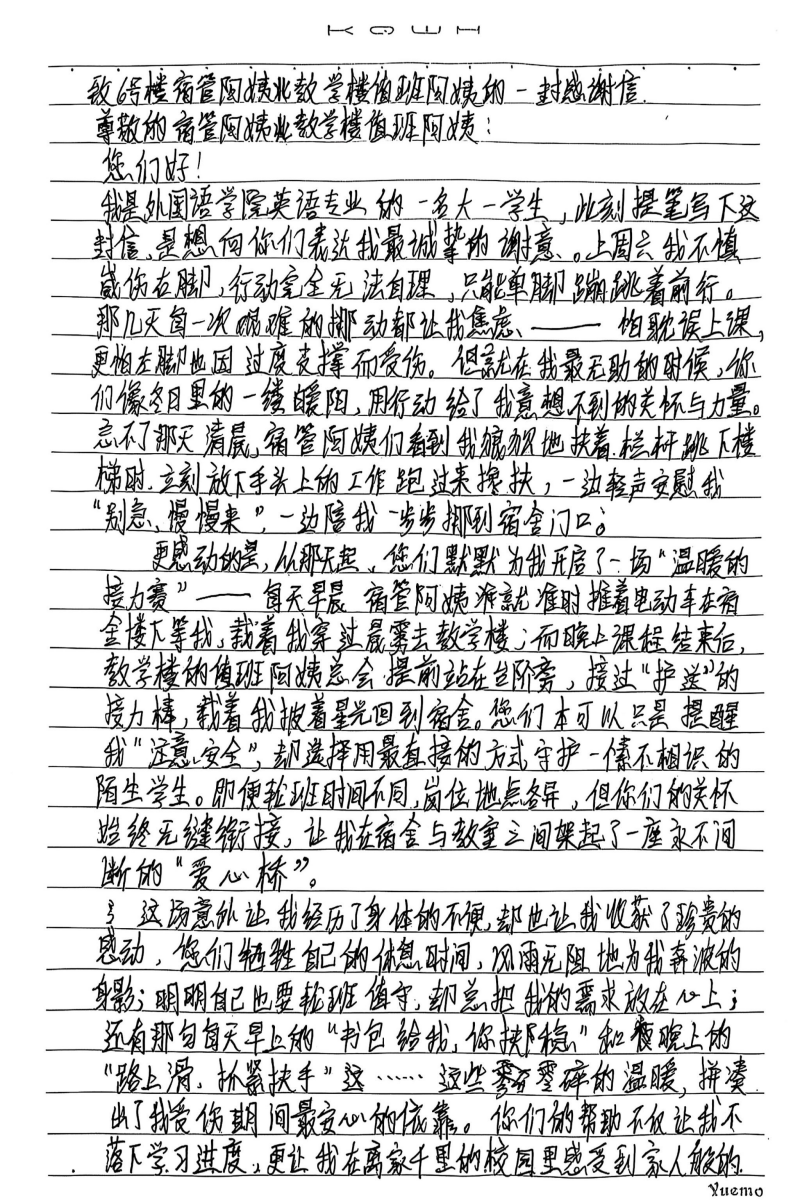 KGWH
致6号楼宿管阿姨北教学楼值班阿姨的一封感谢信.
尊敬的宿管阿姨北教学楼值班阿姨：
您们好！
我是外国语学院英语专业的一名大一学生，此刻提笔写下这
封信，是想向你们表达我最诚挚的谢意、。上周六我不慎
崴伤右脚，行动完全无法自理，只能单脚蹦跳着前行。
那几天每一次艰难的挪动都让我焦虑、——怕耽误上课，
更怕左脚也因过度支撑而受伤。但就在我最无助的时候，你
们像冬日里的一缕暖阳，用行动给了我意想不到的关怀与力量。
忘不了那天清晨，宿管阿姨们看到我狼狈地扶着栏杆跳下楼
梯时，立刻放下手头上的工作跑过来搀扶，一边轻声安慰我
“别急、慢慢来”，一边陪我一步步挪到宿舍门口。
更感动的是，从那天起，您们默默为我开启了一场“温暖的
接力赛”——每天早晨宿管阿姨准就准时推着电动车在宿
舍楼下等我，载着我穿过晨雾去教学楼；而晚上课程结束后，
教学楼的值班阿姨总会提前站在台阶旁，接过“护送”的
接力棒，载着我披着星光回到宿舍。您们本可以只是提醒
我“注意安全”，却选择用最直接的方式守护一個素不相识的
陌生学生。即便轮班时间不同，岗位地点各异，但你们的关怀
始终无缝衔接，让我在宿舍与教室之间架起了一座永不间
断的“爱心桥”。
这场意外让我经历了身体的不便，却也让我收获了珍贵的
感动，您们牺牲自己的休息时间，风雨无阻地为我奔波的
身影；明明自己也要轮班值守，却总把我的需求放在心上；
还有那句每天早上的“书包给我，你扶稳”和晚上的
“路上滑，抓紧扶手”这……这些零碎的温暖，拼凑
出了我受伤期间最安心的依靠。你们的帮助不仅让我不
落下学习进度，更让我在离家千里的校园里感受到家人般的
Yuemo